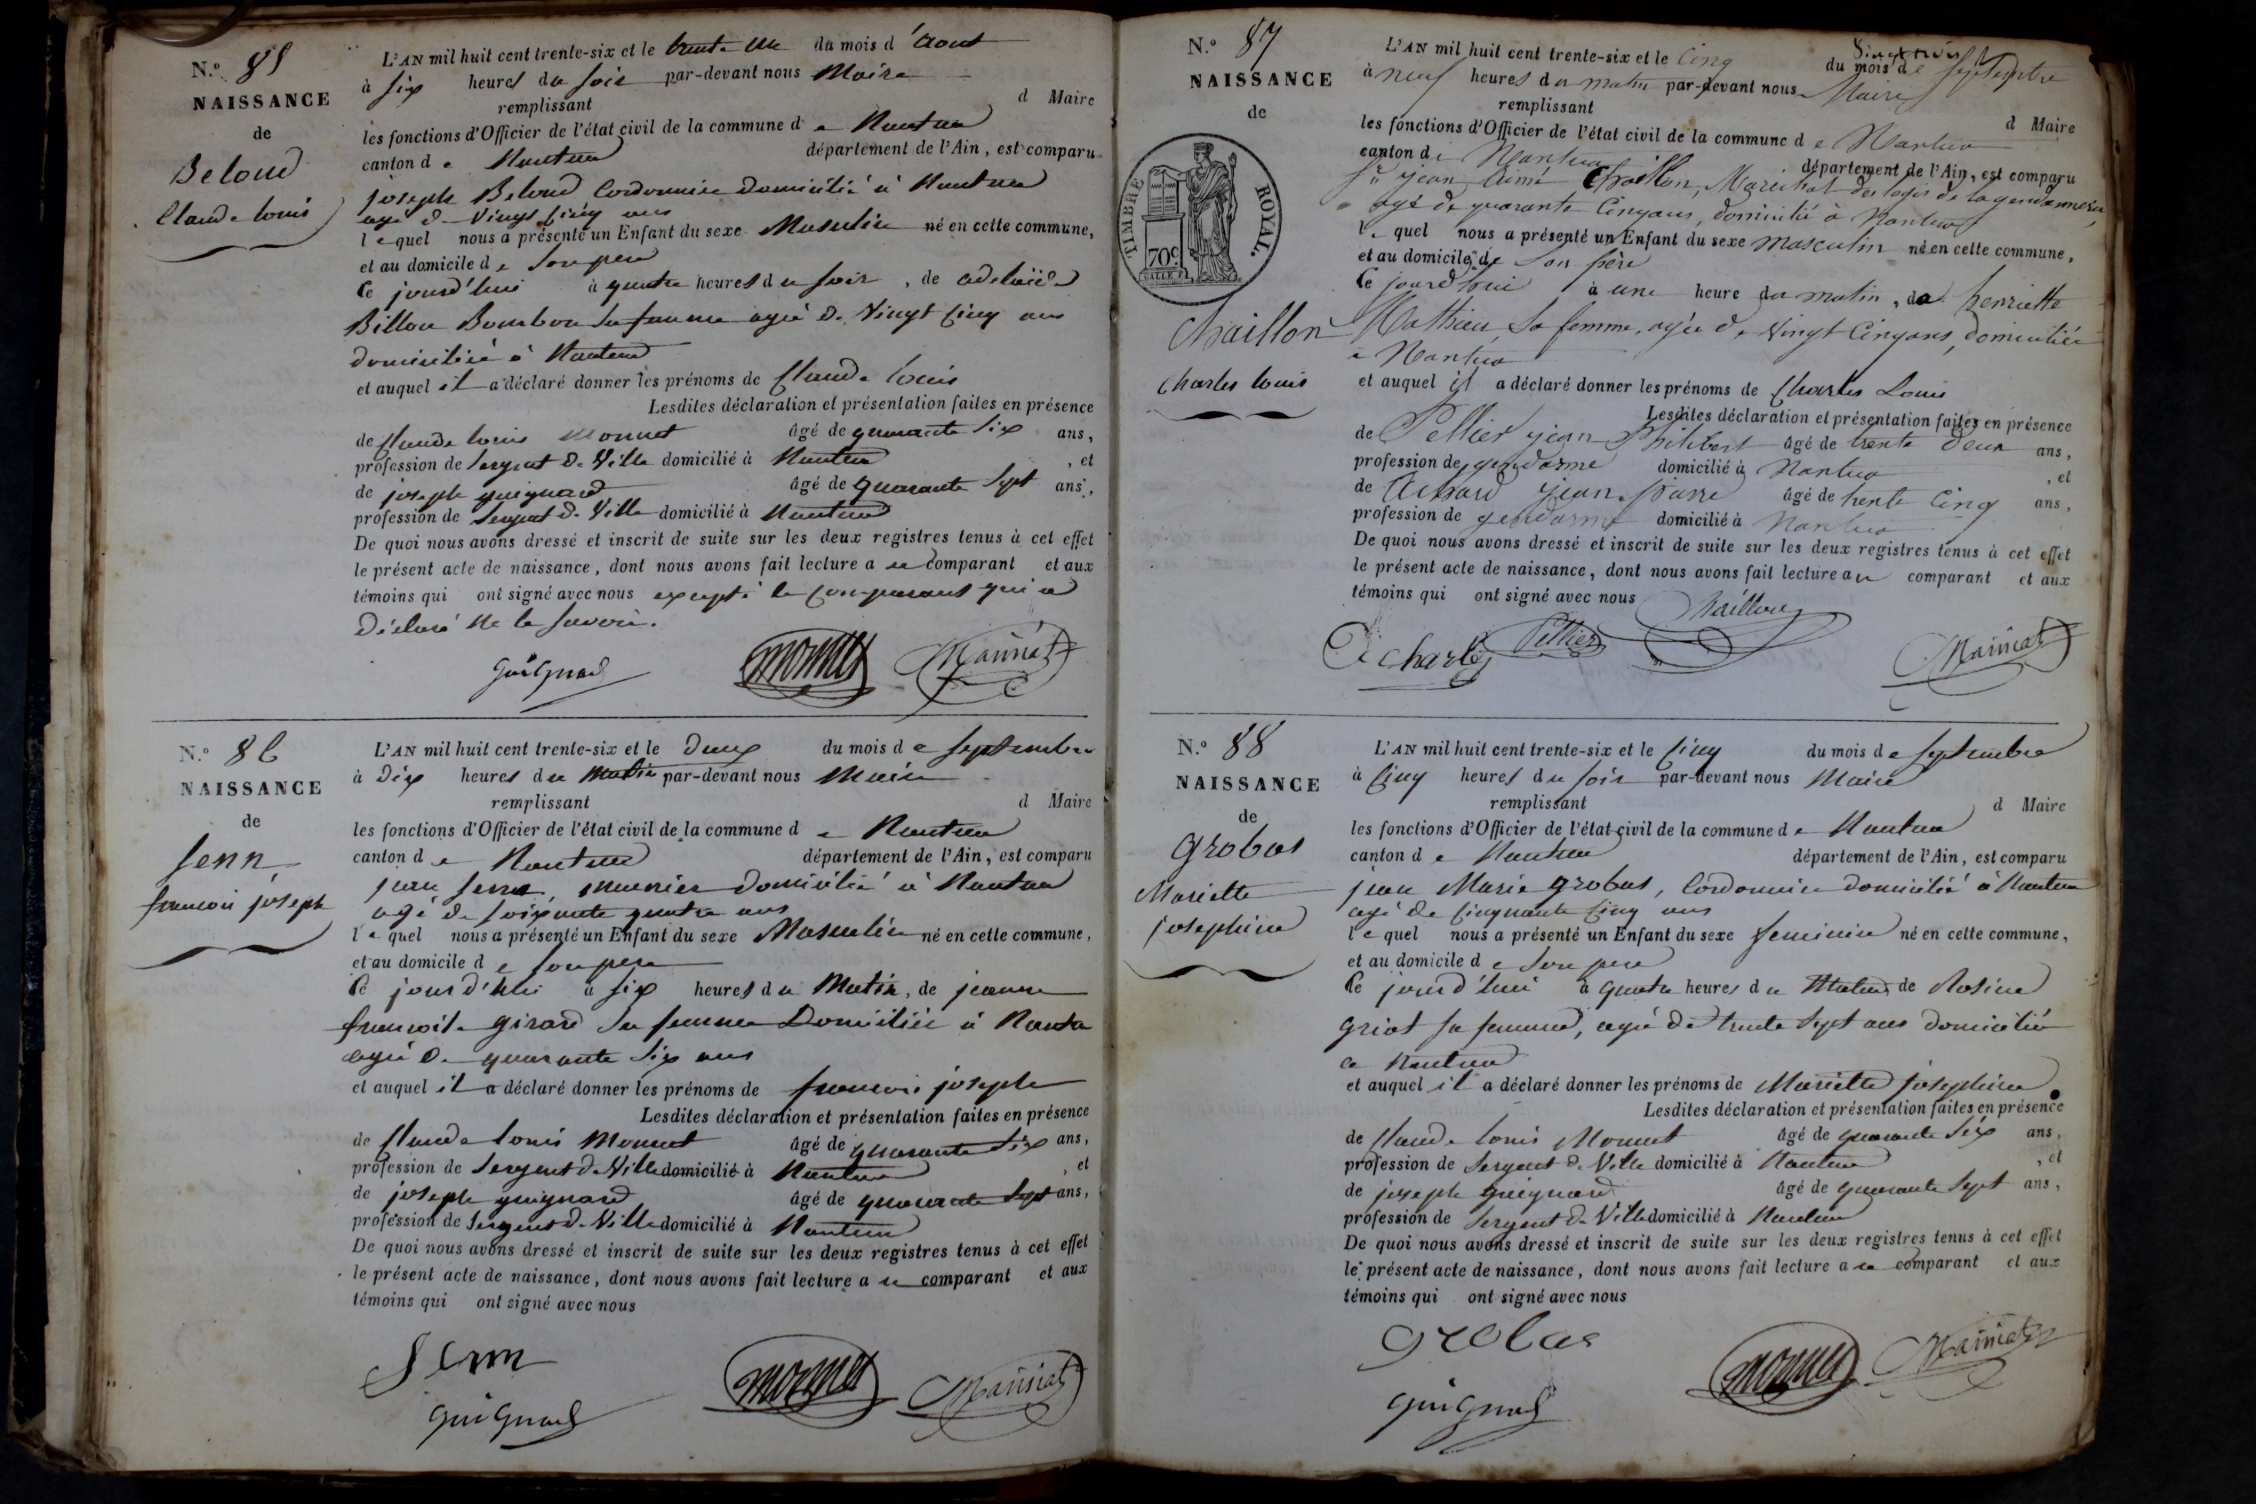 N.° 85
NAISSANCE
de
Beloud
Claude louis
L'AN mil huit cent trente-six et le trente un du mois d'aout
à six heures du soir par-devant nous Maire
remplissant d Maire
les fonctions d'Officier de l'état civil de la commune de Nantua
canton de Nantua département de l'Ain, est comparu
joseph Beloud Cordonnier domicilié à Nantua
agé de Vingt Cinq ans
lequel nous a présenté un Enfant du sexe Masculin né en cette commune,
et au domicile de son pere
Ce jourd'hui à quatre heures du soir, de adelaïde
Billon Bourbon sa femme agée de Vingt Cinq ans
domiciliée à Nantua
et auquel il a déclaré donner les prénoms de Claude louis
Lesdites déclaration et présentation faites en présence
de Claude louis Monnet âgé de quarante six ans,
profession de Sergent de Ville domicilié à Nantua, et
de joseph guignard âgé de quarante sept ans,
profession de Sergent de Ville domicilié à Nantua
De quoi nous avons dressé et inscrit de suite sur les deux registres tenus à cet effet
le présent acte de naissance, dont nous avons fait lecture au comparant et aux
témoins qui ont signé avec nous excepté le comparant qui a
déclaré ne le savoir.
Guignard Monnet Mainiat
N.° 86
NAISSANCE
de
Senn
francois joseph
L'AN mil huit cent trente-six et le deux du mois de septembre
à dix heures du matin par-devant nous Maire
remplissant d Maire
les fonctions d'Officier de l'état civil de la commune de Nantua
canton de Nantua département de l'Ain, est comparu
jean Senn, meunier domicilié à Nantua
agé de soixante quatre ans
lequel nous a présenté un Enfant du sexe Masculin né en cette commune,
et au domicile de son pere
Ce jourd'hui à six heures du Matin, de jeanne
francoise girard sa femme Domiciliée à Nantua
agée de quarante six ans
et auquel il a déclaré donner les prénoms de francois joseph
Lesdites déclaration et présentation faites en présence
de Claude louis Monnet âgé de quarante six ans,
profession de Sergent de Ville domicilié à Nantua, et
de joseph guignard âgé de quarante sept ans,
profession de Sergent de Ville domicilié à Nantua
De quoi nous avons dressé et inscrit de suite sur les deux registres tenus à cet effet
le présent acte de naissance, dont nous avons fait lecture au comparant et aux
témoins qui ont signé avec nous
Senn
Guignard Monnet Mainiat
N.° 87
NAISSANCE
de
TIMBRE ROYAL.
70c
Chaillon
Charles louis
L'AN mil huit cent trente-six et le Cinq du mois de septembre
à neuf heures du matin par-devant nous Maire
remplissant d Maire
les fonctions d'Officier de l'état civil de la commune de Nantua
canton de Nantua département de l'Ain, est comparu
Sr jean Aimé Chaillon, Maréchal des logis de la gendarmerie,
agé de quarante Cinq ans, domicilié à Nantua
lequel nous a présenté un Enfant du sexe masculin né en cette commune,
et au domicile de son père
Ce jourd'hui à une heure du matin, de henriette
Mathieu sa femme, agée de vingt Cinq ans, domiciliée
à Nantua
et auquel il a déclaré donner les prénoms de Charles Louis
Lesdites déclaration et présentation faites en présence
de Pellier jean Philibert âgé de trente deux ans,
profession de gendarme domicilié à Nantua, et
de Achard jean pierre âgé de trente Cinq ans,
profession de gendarme domicilié à Nantua
De quoi nous avons dressé et inscrit de suite sur les deux registres tenus à cet effet
le présent acte de naissance, dont nous avons fait lecture au comparant et aux
témoins qui ont signé avec nous Chaillon
Pellier Mainiat
N.° 88
NAISSANCE
de
grobas
Mariette
josephine
L'AN mil huit cent trente-six et le Cinq du mois de septembre
à Cinq heures du soir par-devant nous Maire
remplissant d Maire
les fonctions d'Officier de l'état civil de la commune de Nantua
canton de Nantua département de l'Ain, est comparu
jean Marie grobas, Cordonnier domicilié à Nantua
agé de Cinquante Cinq ans
lequel nous a présenté un Enfant du sexe feminin né en cette commune,
et au domicile de son pere
Ce jourd'hui à quatre heures du Matin de Rosine
griot sa femme, agée de trente sept ans domiciliée
a Nantua
et auquel il a déclaré donner les prénoms de Mariette josephine
Lesdites déclaration et présentation faites en présence
de Claude louis Monnet âgé de quarante six ans,
profession de Sergent de Ville domicilié à Nantua, et
de joseph guignard âgé de quarante sept ans,
profession de Sergent de Ville domicilié à Nantua
De quoi nous avons dressé et inscrit de suite sur les deux registres tenus à cet effet
le présent acte de naissance, dont nous avons fait lecture au comparant et aux
témoins qui ont signé avec nous
grobas
Guignard Monnet Mainiat